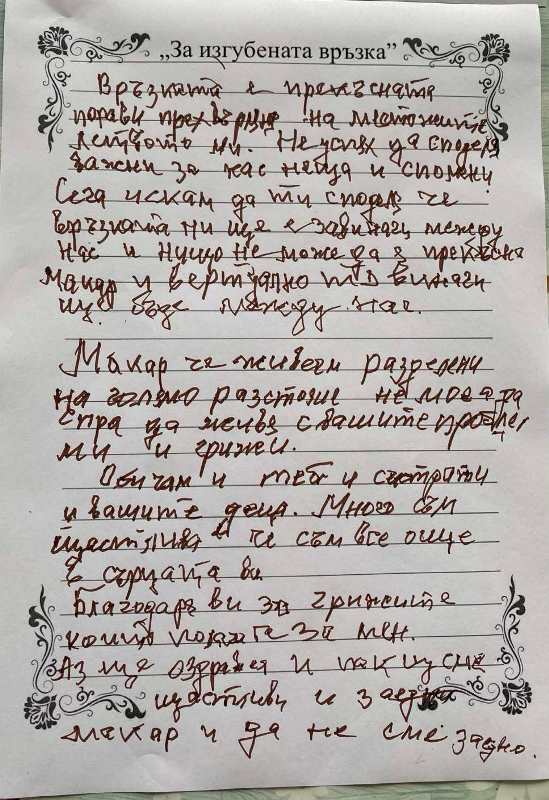 „За изгубената връзка”
Връзката е прекъсната
поради прехвърляне на местожите
лството ми. Не успях да споделя
важни за нас неща и спомени
Сега искам да ти споделя че
връзката ни ще е завинаги между
нас и нищо не може да я прекъсне
Макар и вертуално тя винаги
ще бъде между нас.
Макар че живеем разделени
на голямо разстояние не мога да
спра да живея с вашите пробле,
ми и грижи.
Обичам и теб и сестра ти
и вашите деца. Много съм
щастлива че съм все още
в сърцата ви
Благодаря ви за грижите
които полагате за мен.
Аз ще оздравея и пак ще сме
щастливи и заедно
макар и да не сме заедно.